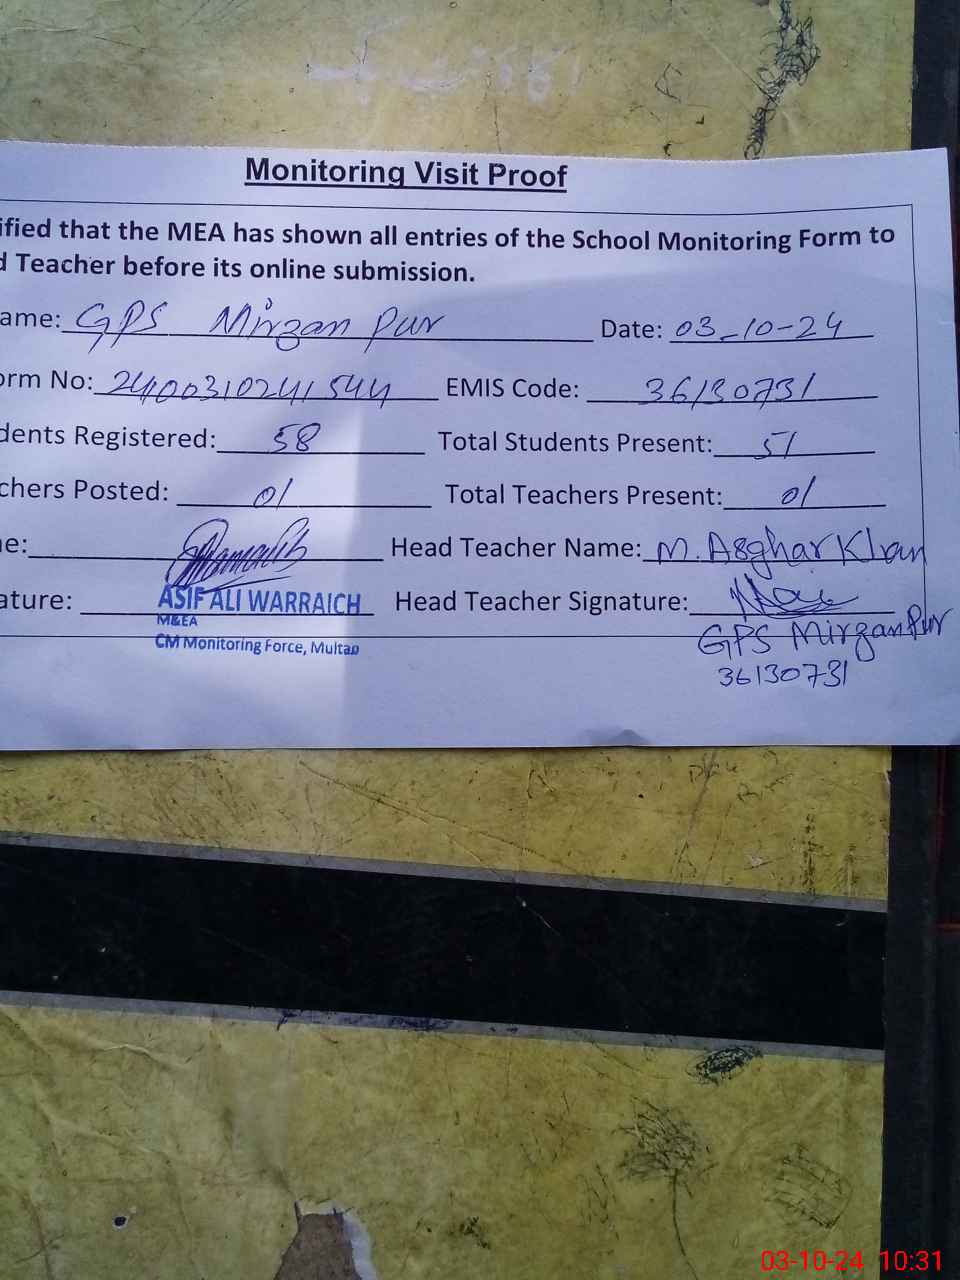 Monitoring Visit Proof
ified that the MEA has shown all entries of the School Monitoring Form to
d Teacher before its online submission.
ame: GPS Mirzan Pur Date: 03-10-24
orm No: 2400310241544 EMIS Code: 36130731
dents Registered: 58 Total Students Present: 51
chers Posted: 01 Total Teachers Present: 01
ne: Head Teacher Name: M. Asghar Khan
ature: ASIF ALI WARRAICH Head Teacher Signature:
M&EA
CM Monitoring Force, Multan
GPS Mirzan Pur
36130731
03-10-24 10:31